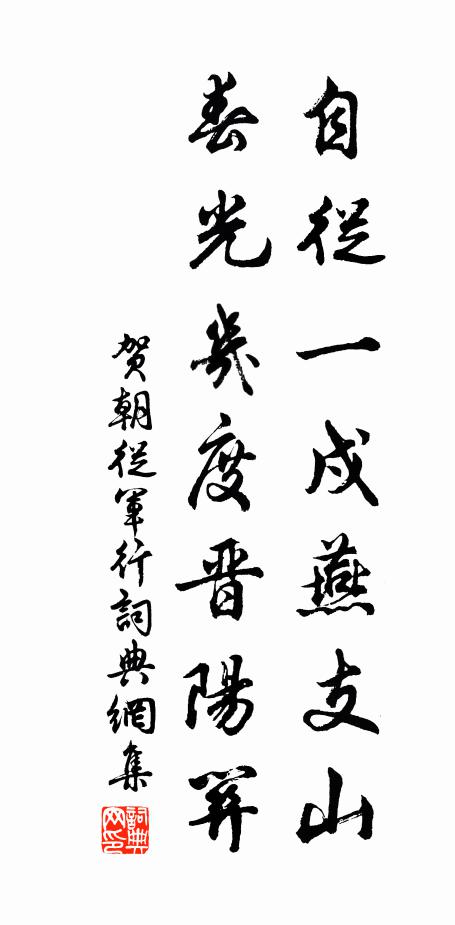 自從一戍燕支山
春光幾度晋陽關
贺朝從軍行詞典網集
詞典网印